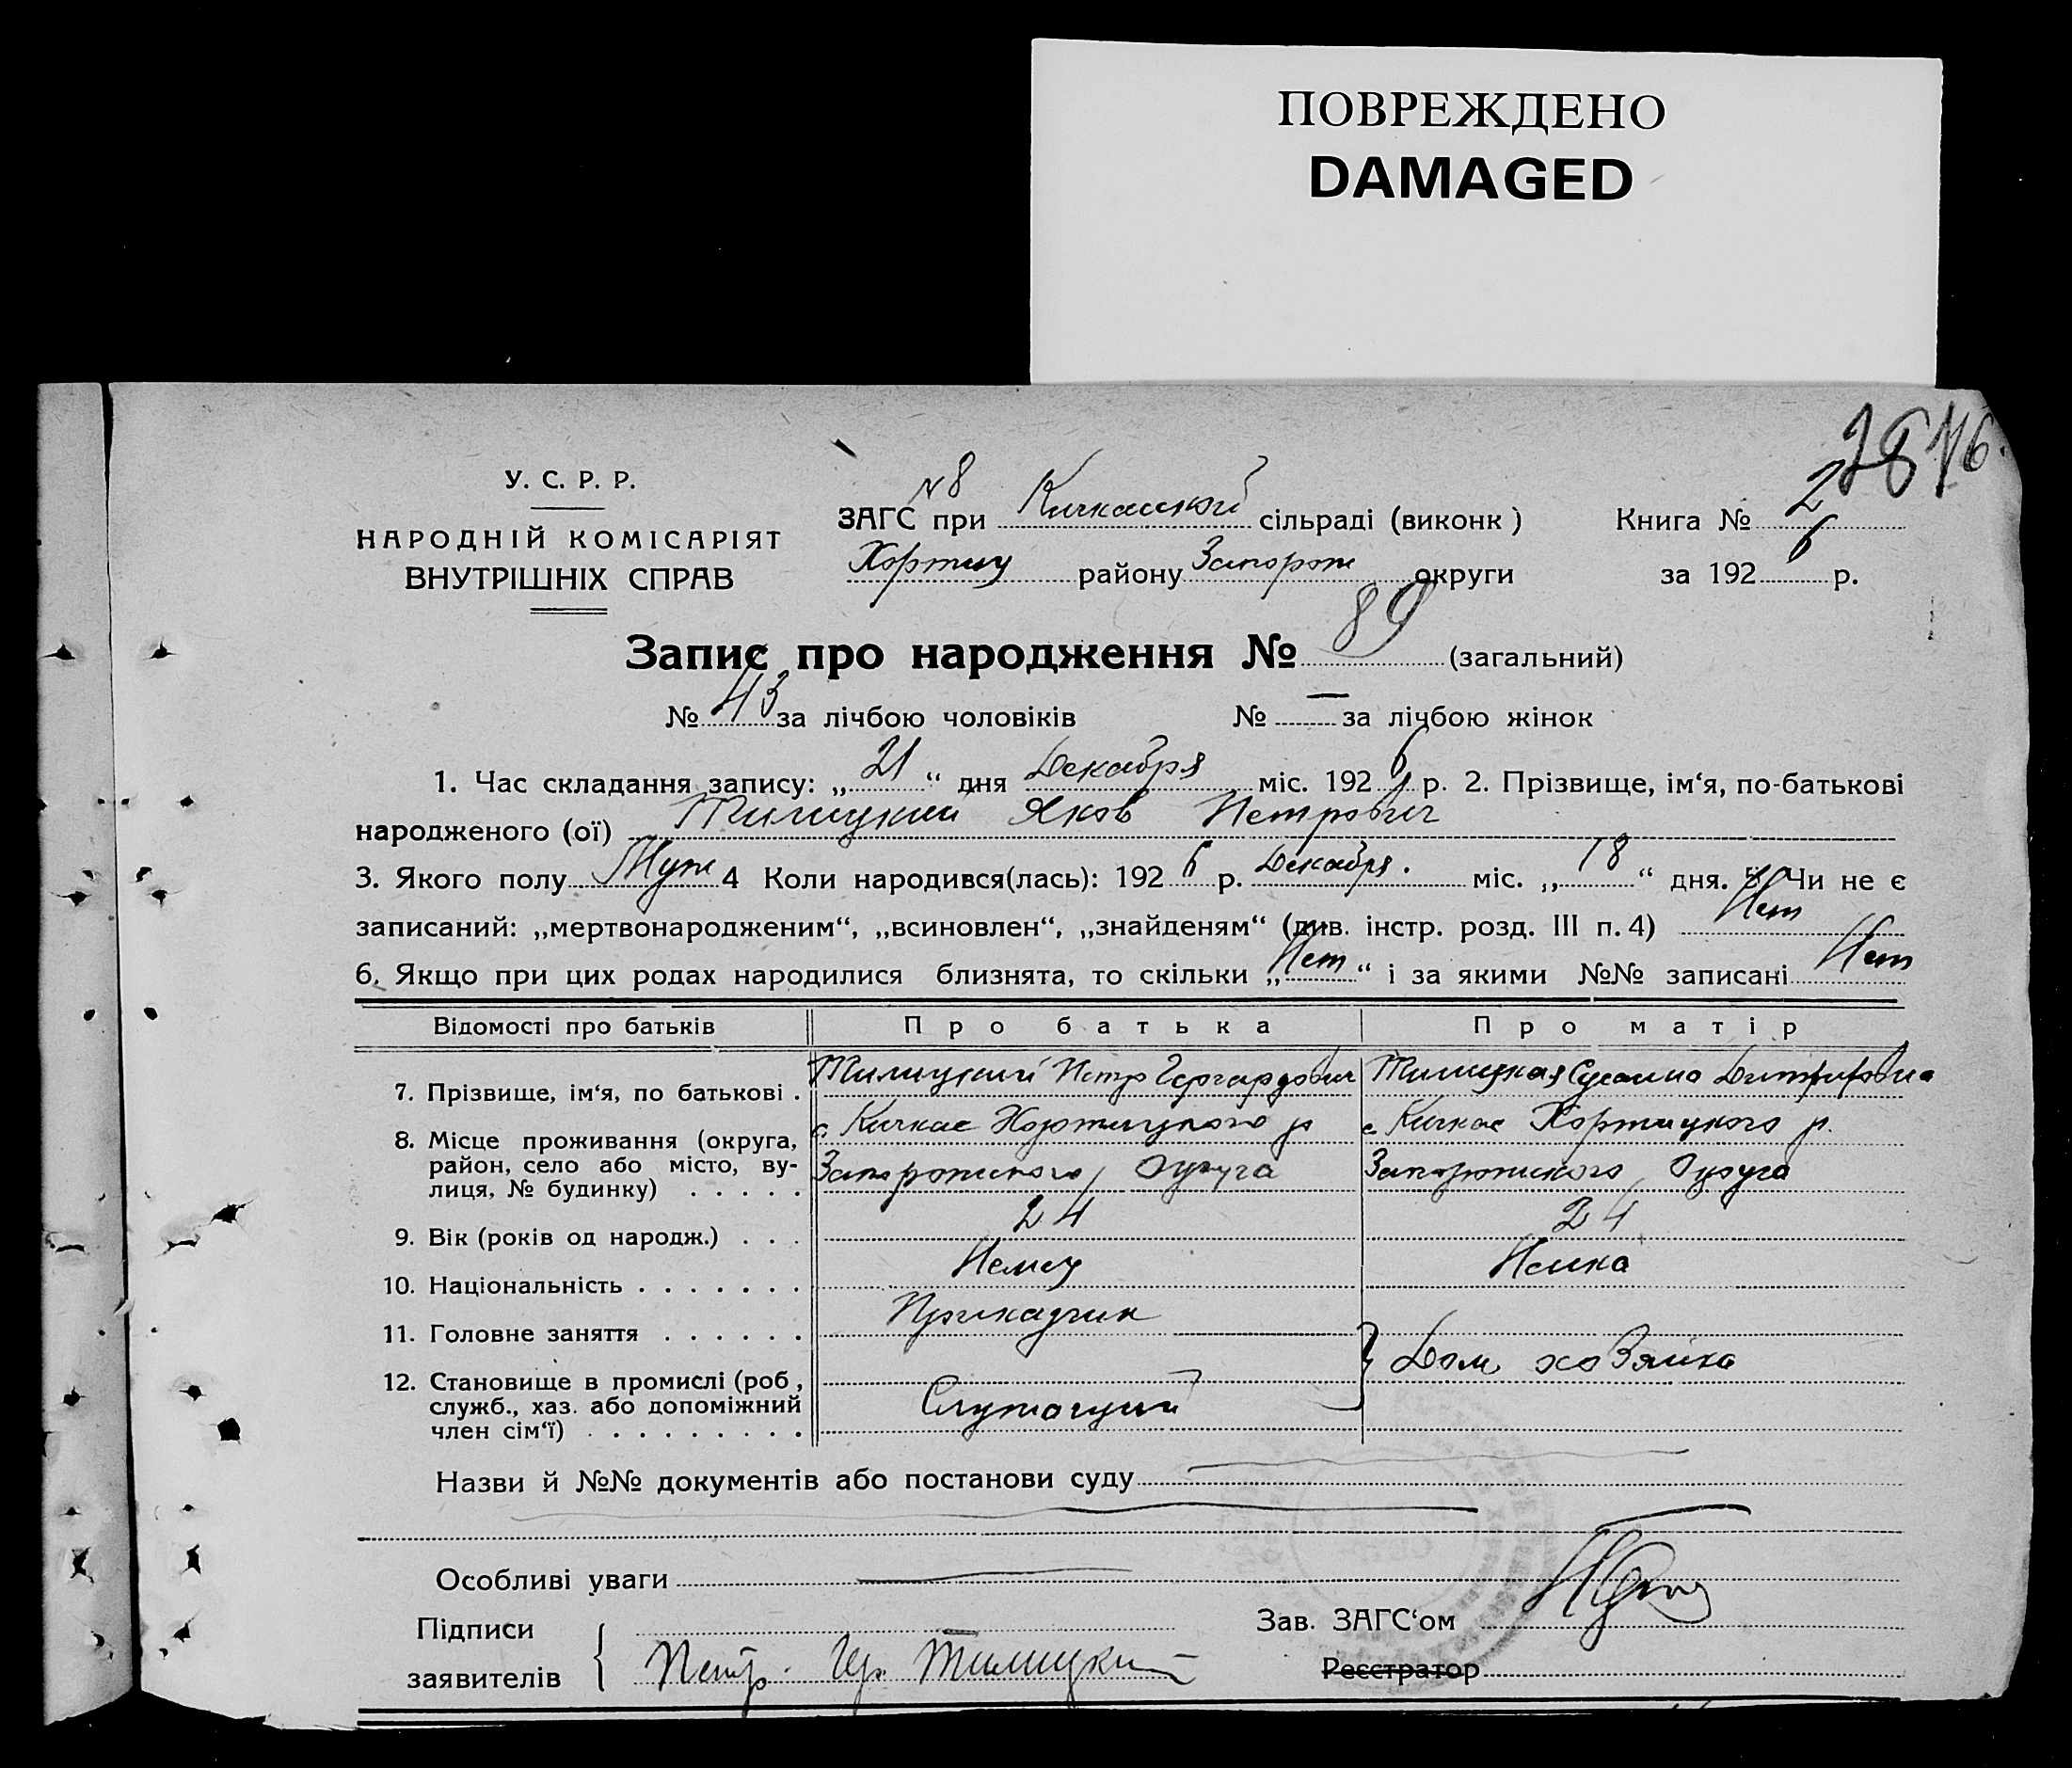 ПОВРЕЖДЕНО
DAMAGED
2
У. С. Р. Р.
НАРОДНІЙ КОМІСАРІЯТ
ВНУТРІШНІХ СПРАВ
№ 8
ЗАГС при Кичкасской сільраді (виконк)
Хортиц району Запорож округи
Книга № 2
за 1926 р.
Запис про народження № 89 (загальний)
№ 43 за лічбою чоловіків № — за лічбою жінок
1. Час складання запису: „21“ дня Декабря міс. 1926 р. 2. Прізвище, ім‘я, по-батькові
народженого (ої) Тилицкий Яков Петрович
3. Якого полу Муж 4 Коли народився(лась): 1926 р. Декабря. міс. „18“ дня. 5. Чи не є
записаний: „мертвонародженим“, „всиновлен“, „знайденям“ (див. інстр. розд. III п. 4) Нет
6. Якщо при цих родах народилися близнята, то скільки „Нет“ і за якими №№ записані Нет
Відомості про батьків Про батька Про матір
7. Прізвище, ім‘я, по батькові . Тилицкий Петр Гергардович Тилицкая Сусанна
8. Місце проживання (округа, с. Кичкас Хортицкого р с Кичкас Хортицкого р.
район, село або місто, ву- Запорожского Округа Запорожского Округа
лиця, № будинку) . . . . .
9. Вік (років од народж.) . . . 24 24
10. Національність . . . . . . . Немец Немка
11. Головне заняття . . . . . . Приказчик Дом хозяйка
12. Становище в промислі (роб., Служащий
служб., хаз. або допоміжний
член сім‘ї) . . . . . . . . .
Назви й №№ документів або постанови суду
Особливі уваги
Підписи
заявителів Петр. Гр. Тилицкий
Зав. ЗАГС‘ом
Реєстратор